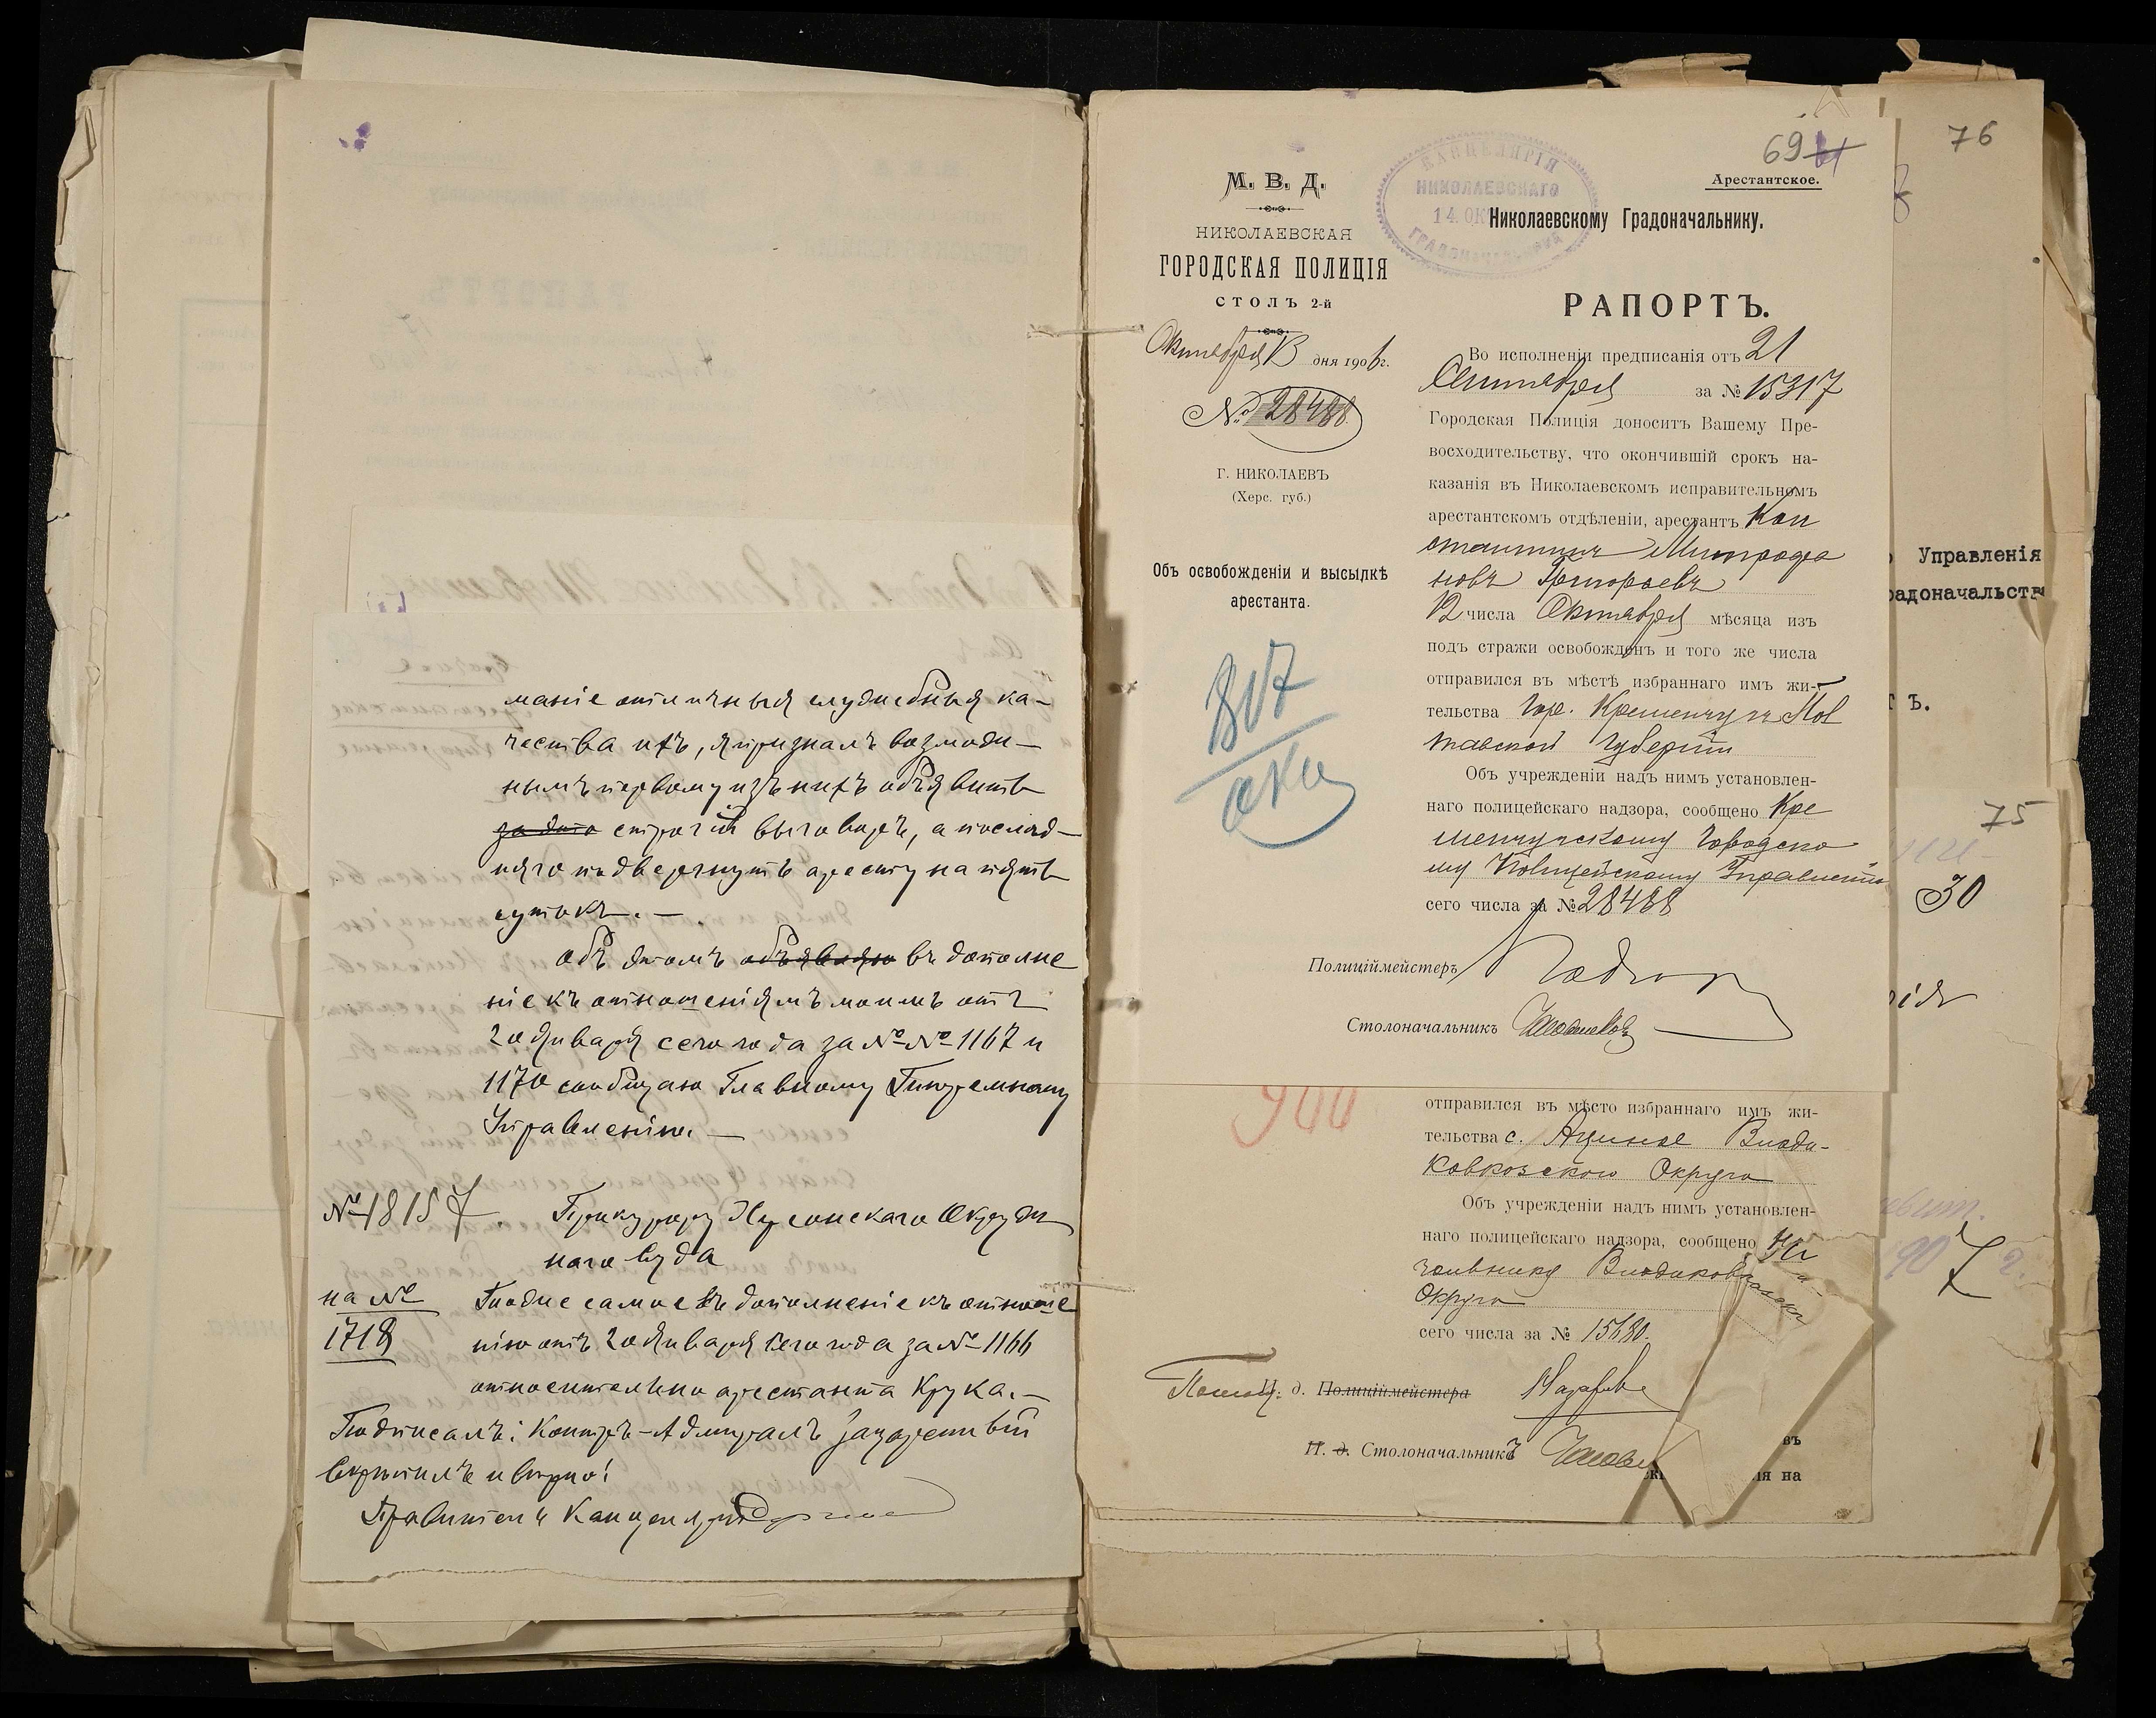 маніе отличныя служебныя ка-
чества ихъ, я призналъ возмож-
нымъ первому изъ нихъ объявить
за это строгій выговоръ, а послѣд-
няго подвергнуть аресту на пять
сутокъ.—
Объ этомъ объявляю въ дополне
ніе къ отношеніямъ моимъ отъ
20 Января сего года за №№ 1167 и
1170 сообщаю Главному Тюремному
Управленію.—
№ 18157.
Прокурору Херсонскаго Окруж
наго Суда
на №
1718
Тоже самое въ дополненіе къ отноше
нію отъ 20 Января сего года за № 1166
относительно арестанта Крука.—
Подписалъ: Контръ-Адмиралъ Зацаренный
Скрѣпилъ и вѣрно:
Правитель Канцеляріи
69
Арестантское.
КАНЦЕЛЯРІЯ
НИКОЛАЕВСКАГО
14. ОК
ГРАДОНАЧАЛЬНИКА
М. В. Д.
НИКОЛАЕВСКАЯ
ГОРОДСКАЯ ПОЛИЦІЯ
СТОЛЪ 2-й
Октября 13 дня 1906 г.
№ 28488.
Г. НИКОЛАЕВЪ
(Херс. губ.)
Объ освобожденіи и высылкѣ
арестанта.
Николаевскому Градоначальнику.
РАПОРТЪ.
Во исполненіи предписанія отъ 21
Сентября за № 15317
Городская Полиція доноситъ Вашему Пре-
восходительству, что окончившій срокъ на-
казанія въ Николаевскомъ исправительномъ
арестантскомъ отдѣленіи, арестантъ Кон
стантинъ Митрофа
новъ Григорьевъ
12 числа Октября мѣсяца изъ
подъ стражи освобожденъ и того же числа
отправился въ мѣстѣ избраннаго имъ жи-
тельства Гор. Кременчугъ Пол
тавской Губерніи
Объ учрежденіи надъ нимъ установлен-
наго полицейскаго надзора, сообщено Кре
менчугскому Городско
му Полицейскому Управленію
сего числа за № 28488
Полиціймейстеръ
Столоначальникъ
900
отправился въ мѣсто избраннаго имъ жи-
тельства с. Ацинае Влади-
Кавказскаго Округа
Объ учрежденіи надъ нимъ установлен-
наго полицейскаго надзора, сообщено На
чальнику Владикавказскаго
Округа
сего числа за № 15680.
Помощ. И. д. Полиціймейстера
И. д. Столоначальникъ
въ
ія на
76
Управленія
радоначальств
ъ.
75
30
ія
907 г.